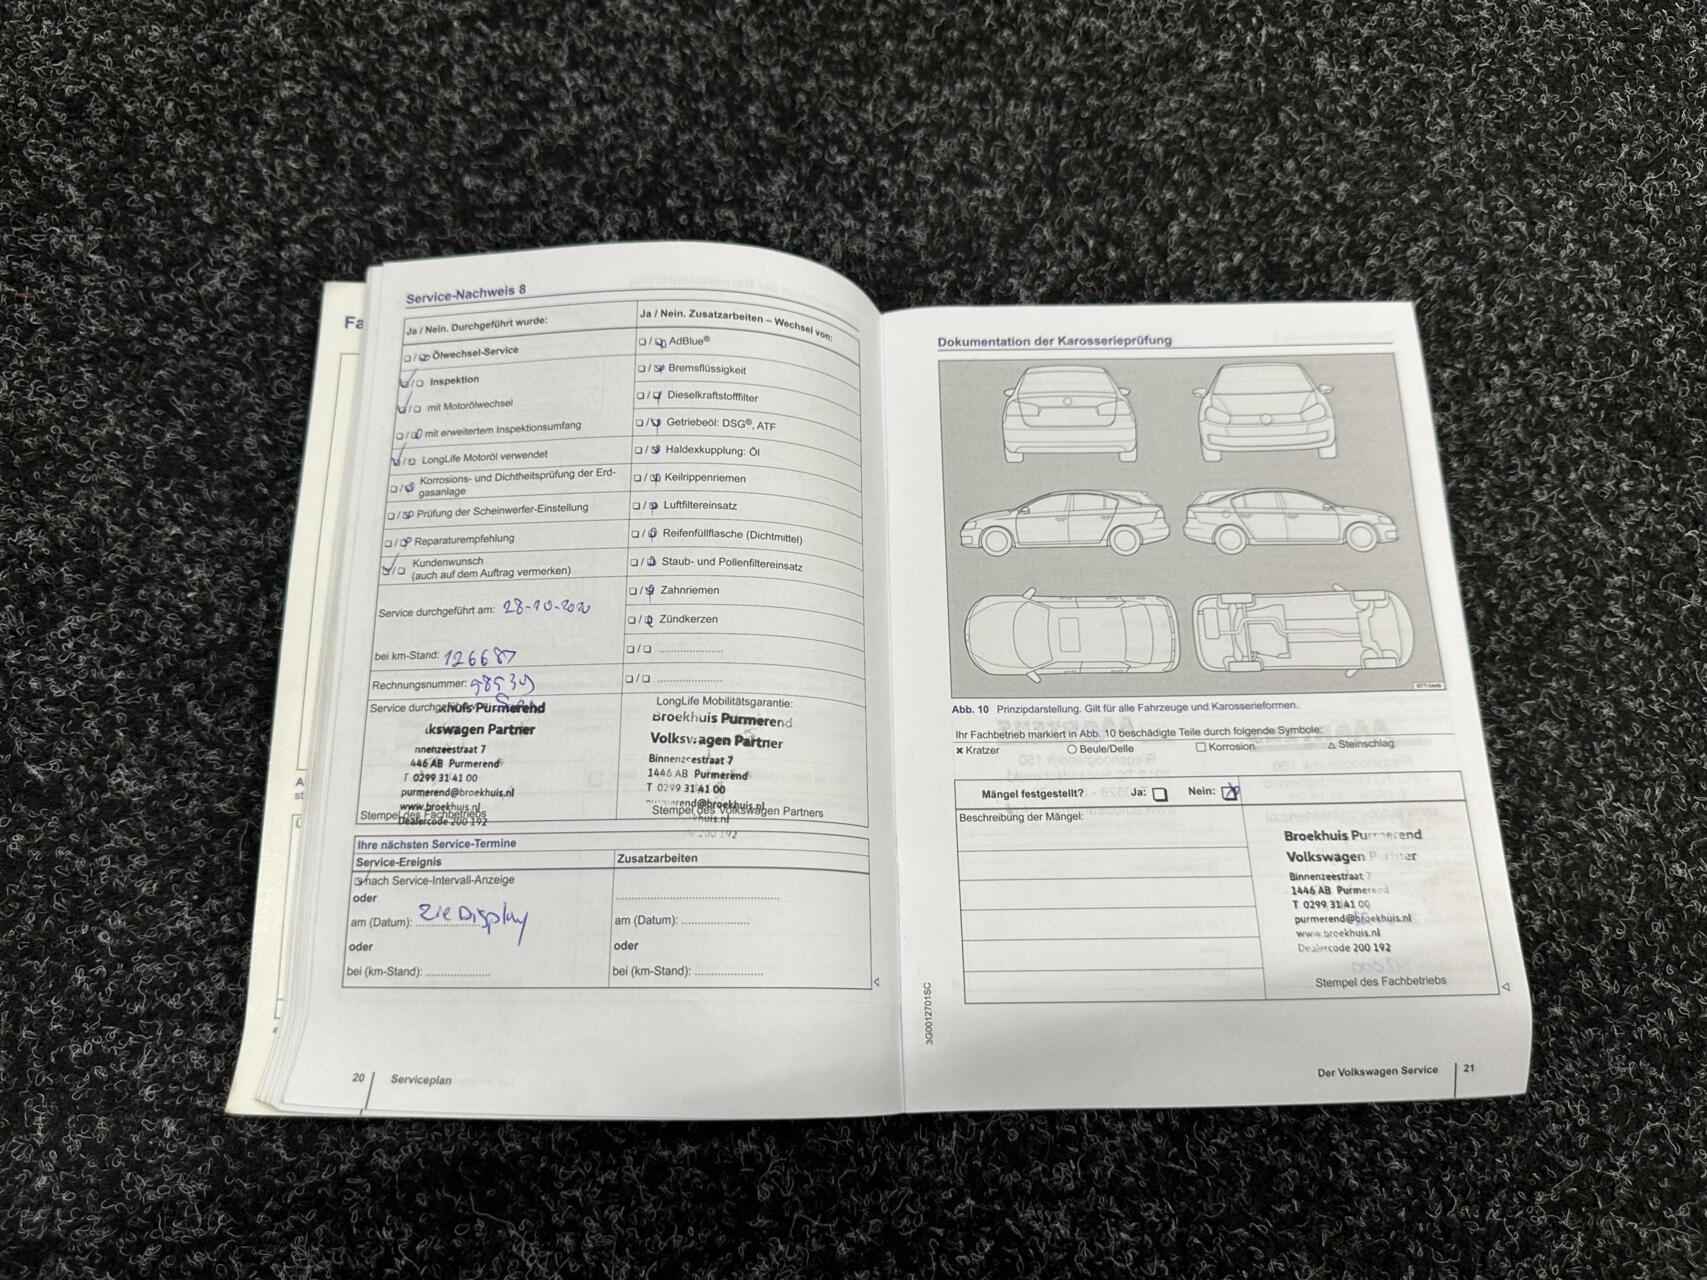 Fa
Service-Nachweis 8
Ja / Nein. Durchgeführt wurde:
Ölwechsel-Service
Inspektion
mit Motorölwechsel
mit erweitertem Inspektionsumfang
LongLife Motoröl verwendet
Korrosions- und Dichtheitsprüfung der Erd-
gasanlage
Prüfung der Scheinwerfer-Einstellung
Reparaturempfehlung
Kundenwunsch
(auch auf dem Auftrag vermerken)
Service durchgeführt am: 28-10-2020
bei km-Stand: 126687
Rechnungsnummer:
Service durchge
khuis Purmerend
lkswagen Partner
nnenzeestraat 7
446 AB Purmerend
T 0299 31 41 00
purmerend@broekhuis.nl
www.broekhuis.nl
Stempel des Fachbetriebs
Dealercode 200 192
Ja / Nein. Zusatzarbeiten – Wechsel von:
AdBlue®
Bremsflüssigkeit
Dieselkraftstofffilter
Getriebeöl: DSG®, ATF
Haldexkupplung: Öl
Keilrippenriemen
Luftfiltereinsatz
Reifenfüllflasche (Dichtmittel)
Staub- und Pollenfiltereinsatz
Zahnriemen
Zündkerzen
LongLife Mobilitätsgarantie:
Broekhuis Purmerend
Volkswagen Partner
Binnenzeestraat 7
1446 AB Purmerend
T 0299 31 41 00
merend@broekhuis.nl
Stempel des Volkswagen Partners
khuis.nl
200 192
Ihre nächsten Service-Termine
Service-Ereignis
nach Service-Intervall-Anzeige
oder
am (Datum): Zie Display
oder
bei (km-Stand):
Zusatzarbeiten
am (Datum):
oder
bei (km-Stand):
20 Serviceplan
Dokumentation der Karosserieprüfung
Abb. 10 Prinzipdarstellung. Gilt für alle Fahrzeuge und Karosserieformen.
Ihr Fachbetrieb markiert in Abb. 10 beschädigte Teile durch folgende Symbole:
Kratzer
Beule/Delle
Korrosion
Steinschlag
Mängel festgestellt? Ja: Nein:
Beschreibung der Mängel:
Broekhuis Purmerend
Volkswagen Partner
Binnenzeestraat 7
1446 AB Purmerend
T 0299 31 41 00
purmerend@broekhuis.nl
www.broekhuis.nl
Dealercode 200 192
Stempel des Fachbetriebs
3G0012701SC
Der Volkswagen Service 21